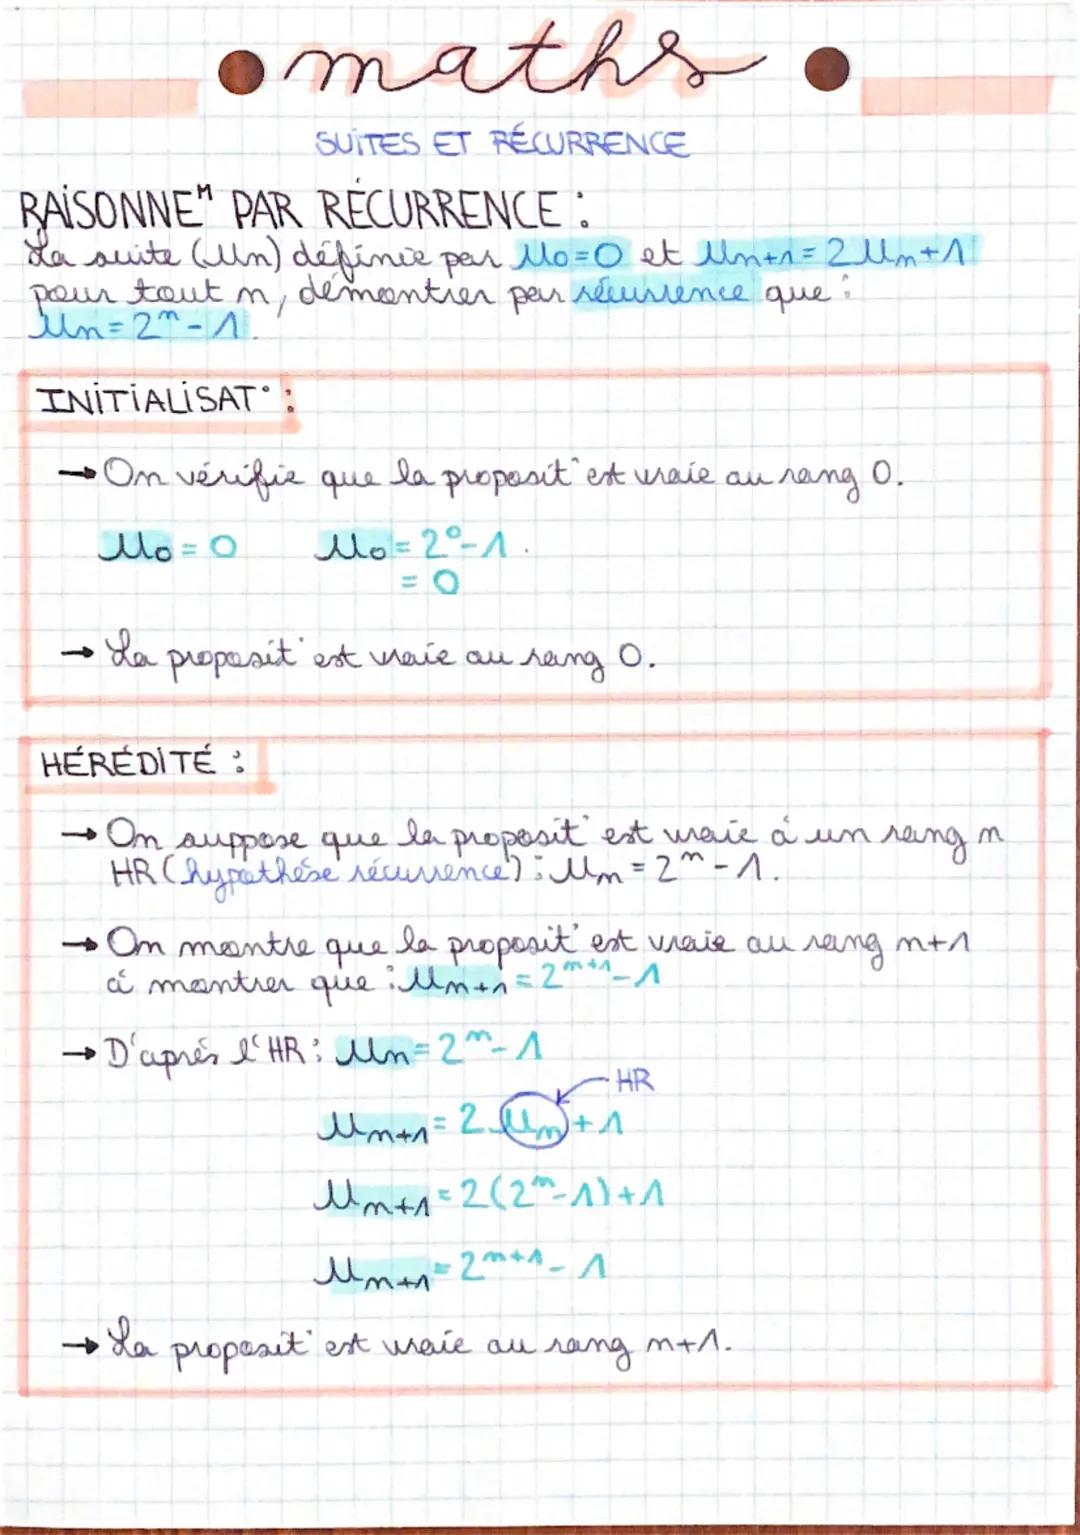 maths
SUITES ET RÉCURRENCE
RAISONNEᴹ PAR RÉCURRENCE :
La suite (Un) définie par U₀ = 0 et Uₙ₊₁ = 2 Uₙ + 1
pour tout n, démontrer par récurrence que :
Uₙ = 2ⁿ - 1.
INITIALISAT° :
→ On vérifie que la proposit° est vraie au rang 0.
U₀ = 0 U₀ = 2⁰ - 1.
= 0
→ La proposit° est vraie au rang 0.
HÉRÉDITÉ :
→ On suppose que la proposit° est vraie à un rang n
HR (hypothèse récurrence) : Uₙ = 2ⁿ - 1.
→ On montre que la proposit° est vraie au rang n+1
à montrer que : Uₙ₊₁ = 2ⁿ⁺¹ - 1
→ D'après l'HR : Uₙ = 2ⁿ - 1
HR
Uₙ₊₁ = 2 Uₙ + 1
Uₙ₊₁ = 2(2ⁿ - 1) + 1
Uₙ₊₁ = 2ⁿ⁺¹ - 1
→ La proposit° est vraie au rang n+1.